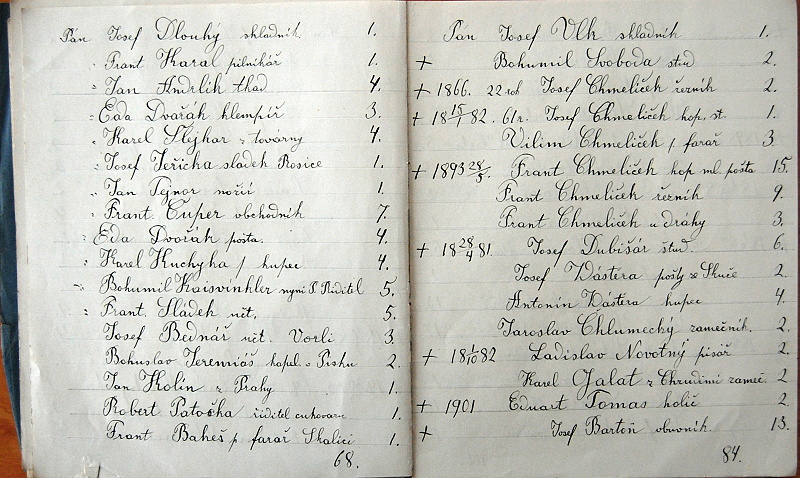 Pán Josef Dlouhý skladník 1.
" Frant Karal pilnikář 1.
" Jan Andrlík tkad 4.
" Eda Dvořák klempíř 3.
" Karel Slejhar z továrny 4.
" Josef Jeřicha sládek Rosice 1.
" Jan Pejnor nožíř 1.
" Frant. Cuper obchodník 7.
" Eda Dvořák pošta. 4.
" Karel Kuchyňa / kupec 4.
" Bohumil Kaiswinkler nyní Ř. Řiditel 5.
" Frant. Sládek účt. 5.
Josef Bednář účt. Vorli 3.
Bohuslav Jeremiáš kapel. s Písku 2.
Jan Kolín z Prahy 1.
Robert Patočka řiditel cukrovaru 1.
Frant Baheš p. farář Skalici 1.
68.
Pán Josef Vlk skladník 1.
+ Bohumil Svoboda stud 2.
+ 1866. 22 rok Josef Chmelíček řezník 2.
+ 18 15/1 82. 61r. Josef Chmelíček hop. st. 1.
Vilím Chmelíček p. farář 3
+ 1893 28/5. Frant Chmelíček hop ml. pošta 15.
Frant Chmelíček řezník 9.
Frant Chmelíček u dráhy 3.
+ 18 28/4 81. Josef Dubišár stud. 6.
Josef Wástera pošty ze Skuče 2.
Antonín Wástera kupec 4.
Jaroslav Chlumecký zamečník. 2.
+ 18 1/10 82 Ladislav Novotný písář 2.
Karel Galat z Chrudimi zameč. 2.
+ 1901 Eduart Tomas holič 2.
+ Josef Bartoň obuvník. 13.
84.